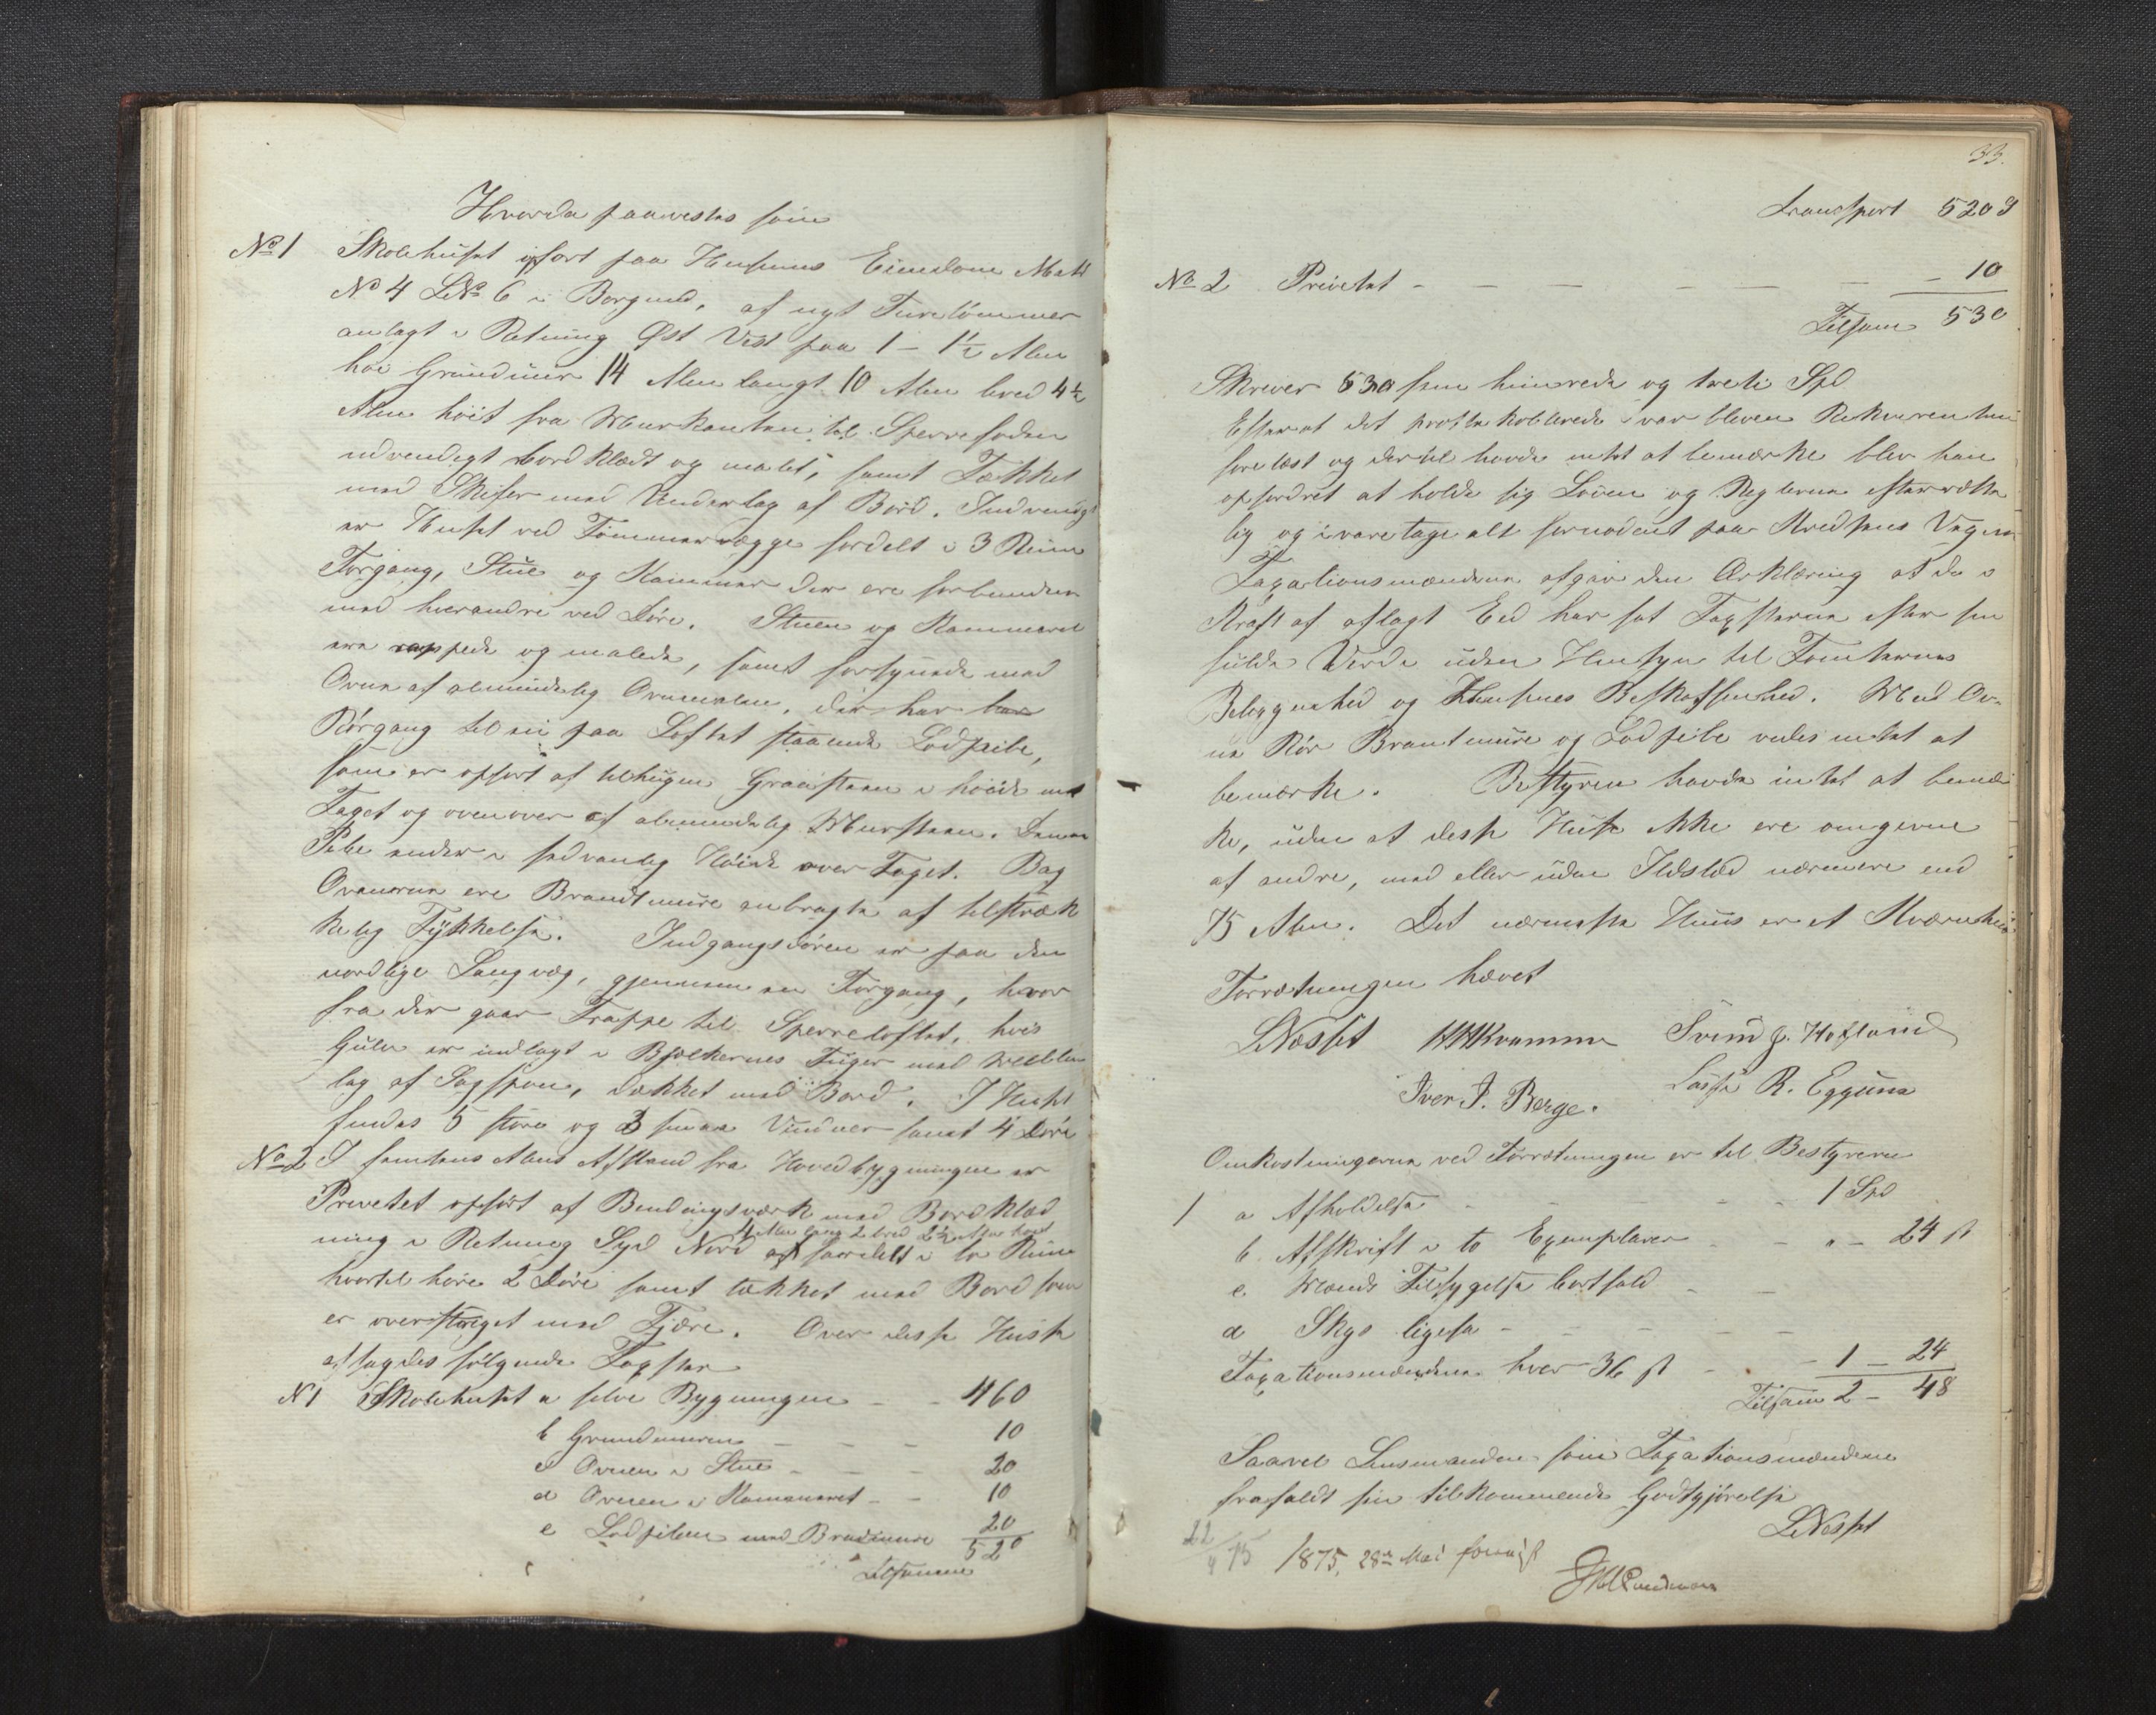 Hvorda paavistes som
No 1 Skolehuset opført paa Husums Eiendom Matr
No 4 LNo 6 i Borgund, af nyt Furetømmer
anlagt i Retning Øst Vest paa 1 - 1½ Alen
høi Grundmur 14 Alen langt 10 Alen bred 4½
Alen høit fra Murkanten til Sperrefoden
udvendigt bordklædt og malet, samt Tækket
med Skifer med Underlag af Bord. Indvendigt
er Huset ved Tømmervægge fordelt i 3 Rum
Forgang, Stue og Kammer der ere forbundne
med hverandre ved Døre. Stuen og Kammeret
ere rappede og malede, samt forsynede med
Ovne af almindelig Ovnmalm, der har
Rørgang til en paa Loftet staaende Lodpibe,
som er opført af tilhugen Graasteen i høide med
Taget og ovenover af almindelig Mursteen. Denne
Pibe ender i sædvanlig Høide over Taget. Bag
Ovnene ere Brandtmure anbragte af tilstræk
kelig Tykkelse. Indgangsdøren er paa den
nordlige Langvæg, gjennem en Forgang, hvor
fra der gaar Trappe til Sperreloftet, hvis
Gulv er indlagt i Bjelkernes Fuger med Mellem
lag af Sagspon, dækket med Bord. I Huset
findes 5 store og 3 smaa Vinduer samt 4 Døre
No 2 I femten Alens Afstand fra Hovedbygningen er
Privetet opført af Bindingsværk med Bordklæd
4 Alen lang 2 bred 2½ Alen høit
ning i Retning Syd Nord fordelt i to Rum
hvortil høre 2 Døre samt tækket med Bord som
er overstrøget med Tjære. Over disse Huse
afsagdes følgende Taxter
N 1 Skolehuset a selve Bygningen - - 460
b Grundmuren - - - 10
c Ovnen i Stue - - - 20
d Ovnen i Kammeret - - 10
e Lodpiben med Brandmure 20
Tilsammen 520
33.
Transport 520
No 2 Privetet - - - - - - - 10
Tilsam 530
Skriver 530 fem hundrede og treti Spd
Efterat det protokollerede var bleven Rekvirenten
forelæst og dertil havde intet at bemærke blev han
opfordret at holde sig Loven og Reglerne efterrette
lig og ivaretage alt fornødent paa Kredsens Vegne.
Taxationsmændene afgav den Erklæring at de i
Kraft af aflagt Eed har sat Taxterne efter sin
fulde Værdi uden Hensyn til Tomternes
Beliggenhed og Husenes Beskaffenhed. Med Ov-
ne Rør Brantmure og Lodpibe vides intet at
bemærke. Bestyren havde intet at bemær
ke, uden at disse Huse ikke ere omgivne
af andre, med eller uden Ildsted nærmere end
75 Alen. Det nærmeste Huus er et Kværnhus
Forretningen hævet
LNæsset HHKvamme Svend J. Hofland
Iver I. Berge. Lasse R. Eggum
Omkostningerne ved Forretningen er til Bestyreren
1 a Afholdelse - - - - - 1 Spd
b. Afskrift i to Exemplarer - - " - 24 ß
c. Mænds Tilsigelse bortfald - -
d Skyds ligesa - - - - -
Taxationsmændene hver 36 ß - - - 1 - 24
Tilsam 2 - 48
Saavel Lensmanden som Taxationsmændene
frafaldt sin tilkommende Godtgjørelse
LNæsset
22/4 75 1875, 28de Mai forevist